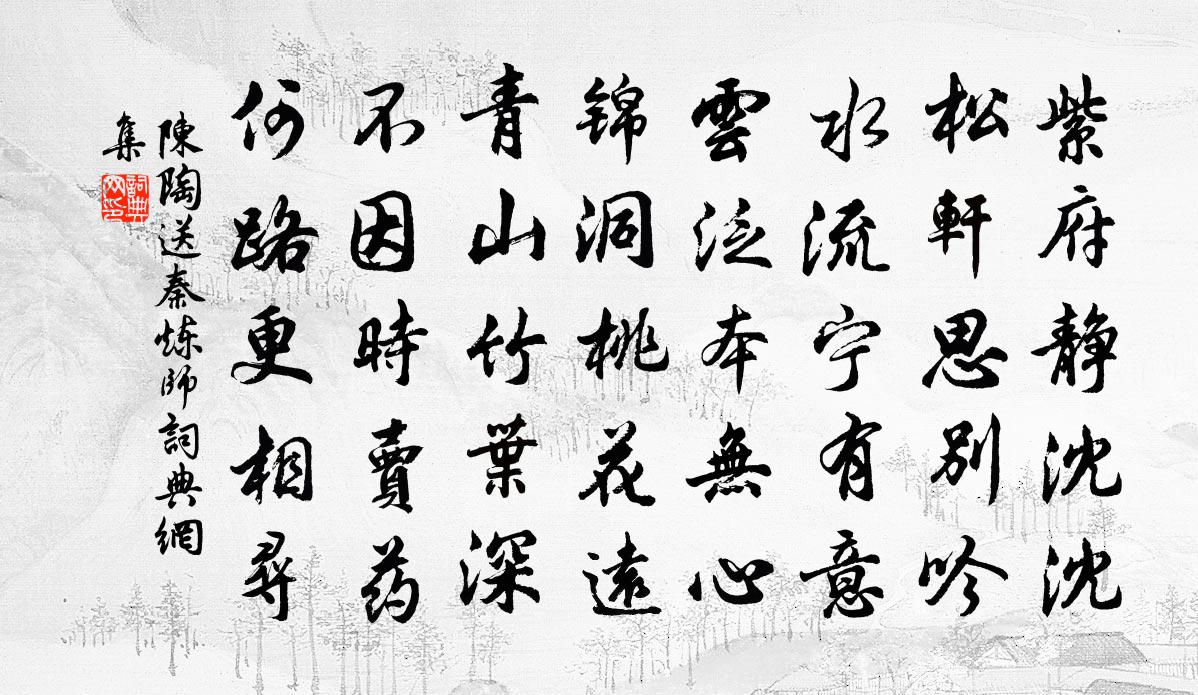 紫府静沈沈
松軒思别吟
水流宁有意
雲泛本無心
锦洞桃花遠
青山竹葉深
不因時賣药
何路更相尋
陳陶送秦炼師詞典網
集
詞典
网印